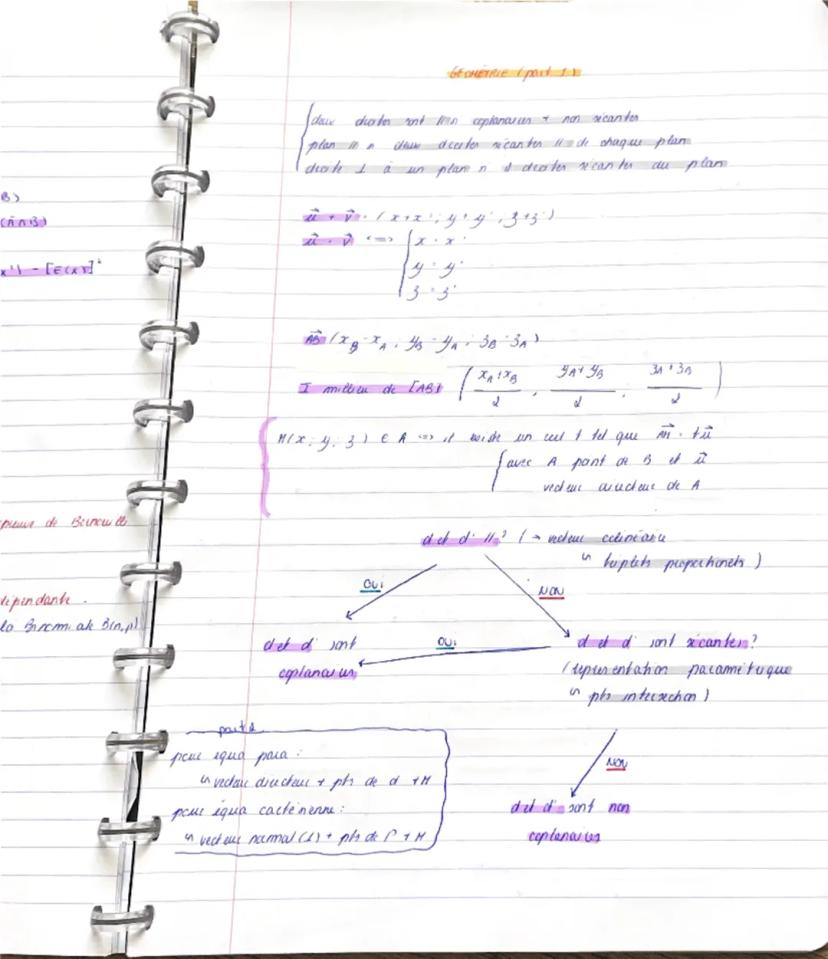 B)
(Ā∩B)
x²) - [E(X)]²
épreuve de Bernoulli
dépendante.
la Binomiale B(n,p)
GÉOMÉTRIE (part 1)
deux droites sont // si coplanaires + non sécantes
plan // si deux droites sécantes // de chaque plan
droite ⊥ à un plan si ⊥ droites sécantes du plan
u⃗ + v⃗ = (x+x' ; y+y' ; z+z')
u⃗ = v⃗ <=> { x = x'
y = y'
z = z'
AB⃗ (x_B - x_A ; y_B - y_A ; z_B - z_A)
I milieu de [AB] ( (x_A+x_B)/2 , (y_A+y_B)/2 , (z_A+z_B)/2 )
M(x ; y ; z) ∈ A <=> il existe un réel t tel que AM⃗ = tu⃗
avec A point de B et u⃗
vecteur directeur de A
d et d' // ? (→ vecteur colinéaire
↳ triplets proportionnels)
OUI
NON
d et d' sont
coplanaires
OUI
d et d' sont sécantes ?
(représentation paramétrique
↳ pts intersection)
NON
d et d' sont non
coplanaires
part 2
pour équa para :
↳ vecteur directeur + pts de d + M
pour équa cartésienne :
↳ vecteur normal (⊥) + pts de P + M